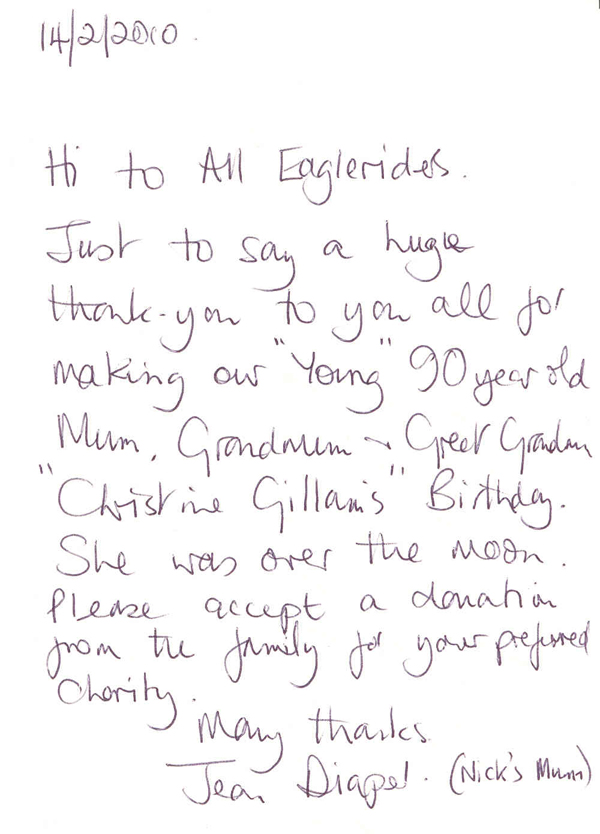 14/2/2010.
Hi to All Eaglerides.
Just to say a huge
thank-you to you all for
making our "Young" 90 year old
Mum, Grandmum & Great Grandmum
"Christine Gillam's" Birthday.
She was over the moon.
Please accept a donation
from the family for your preferred
Charity.
Many thanks
Jean (Nick's Mum)